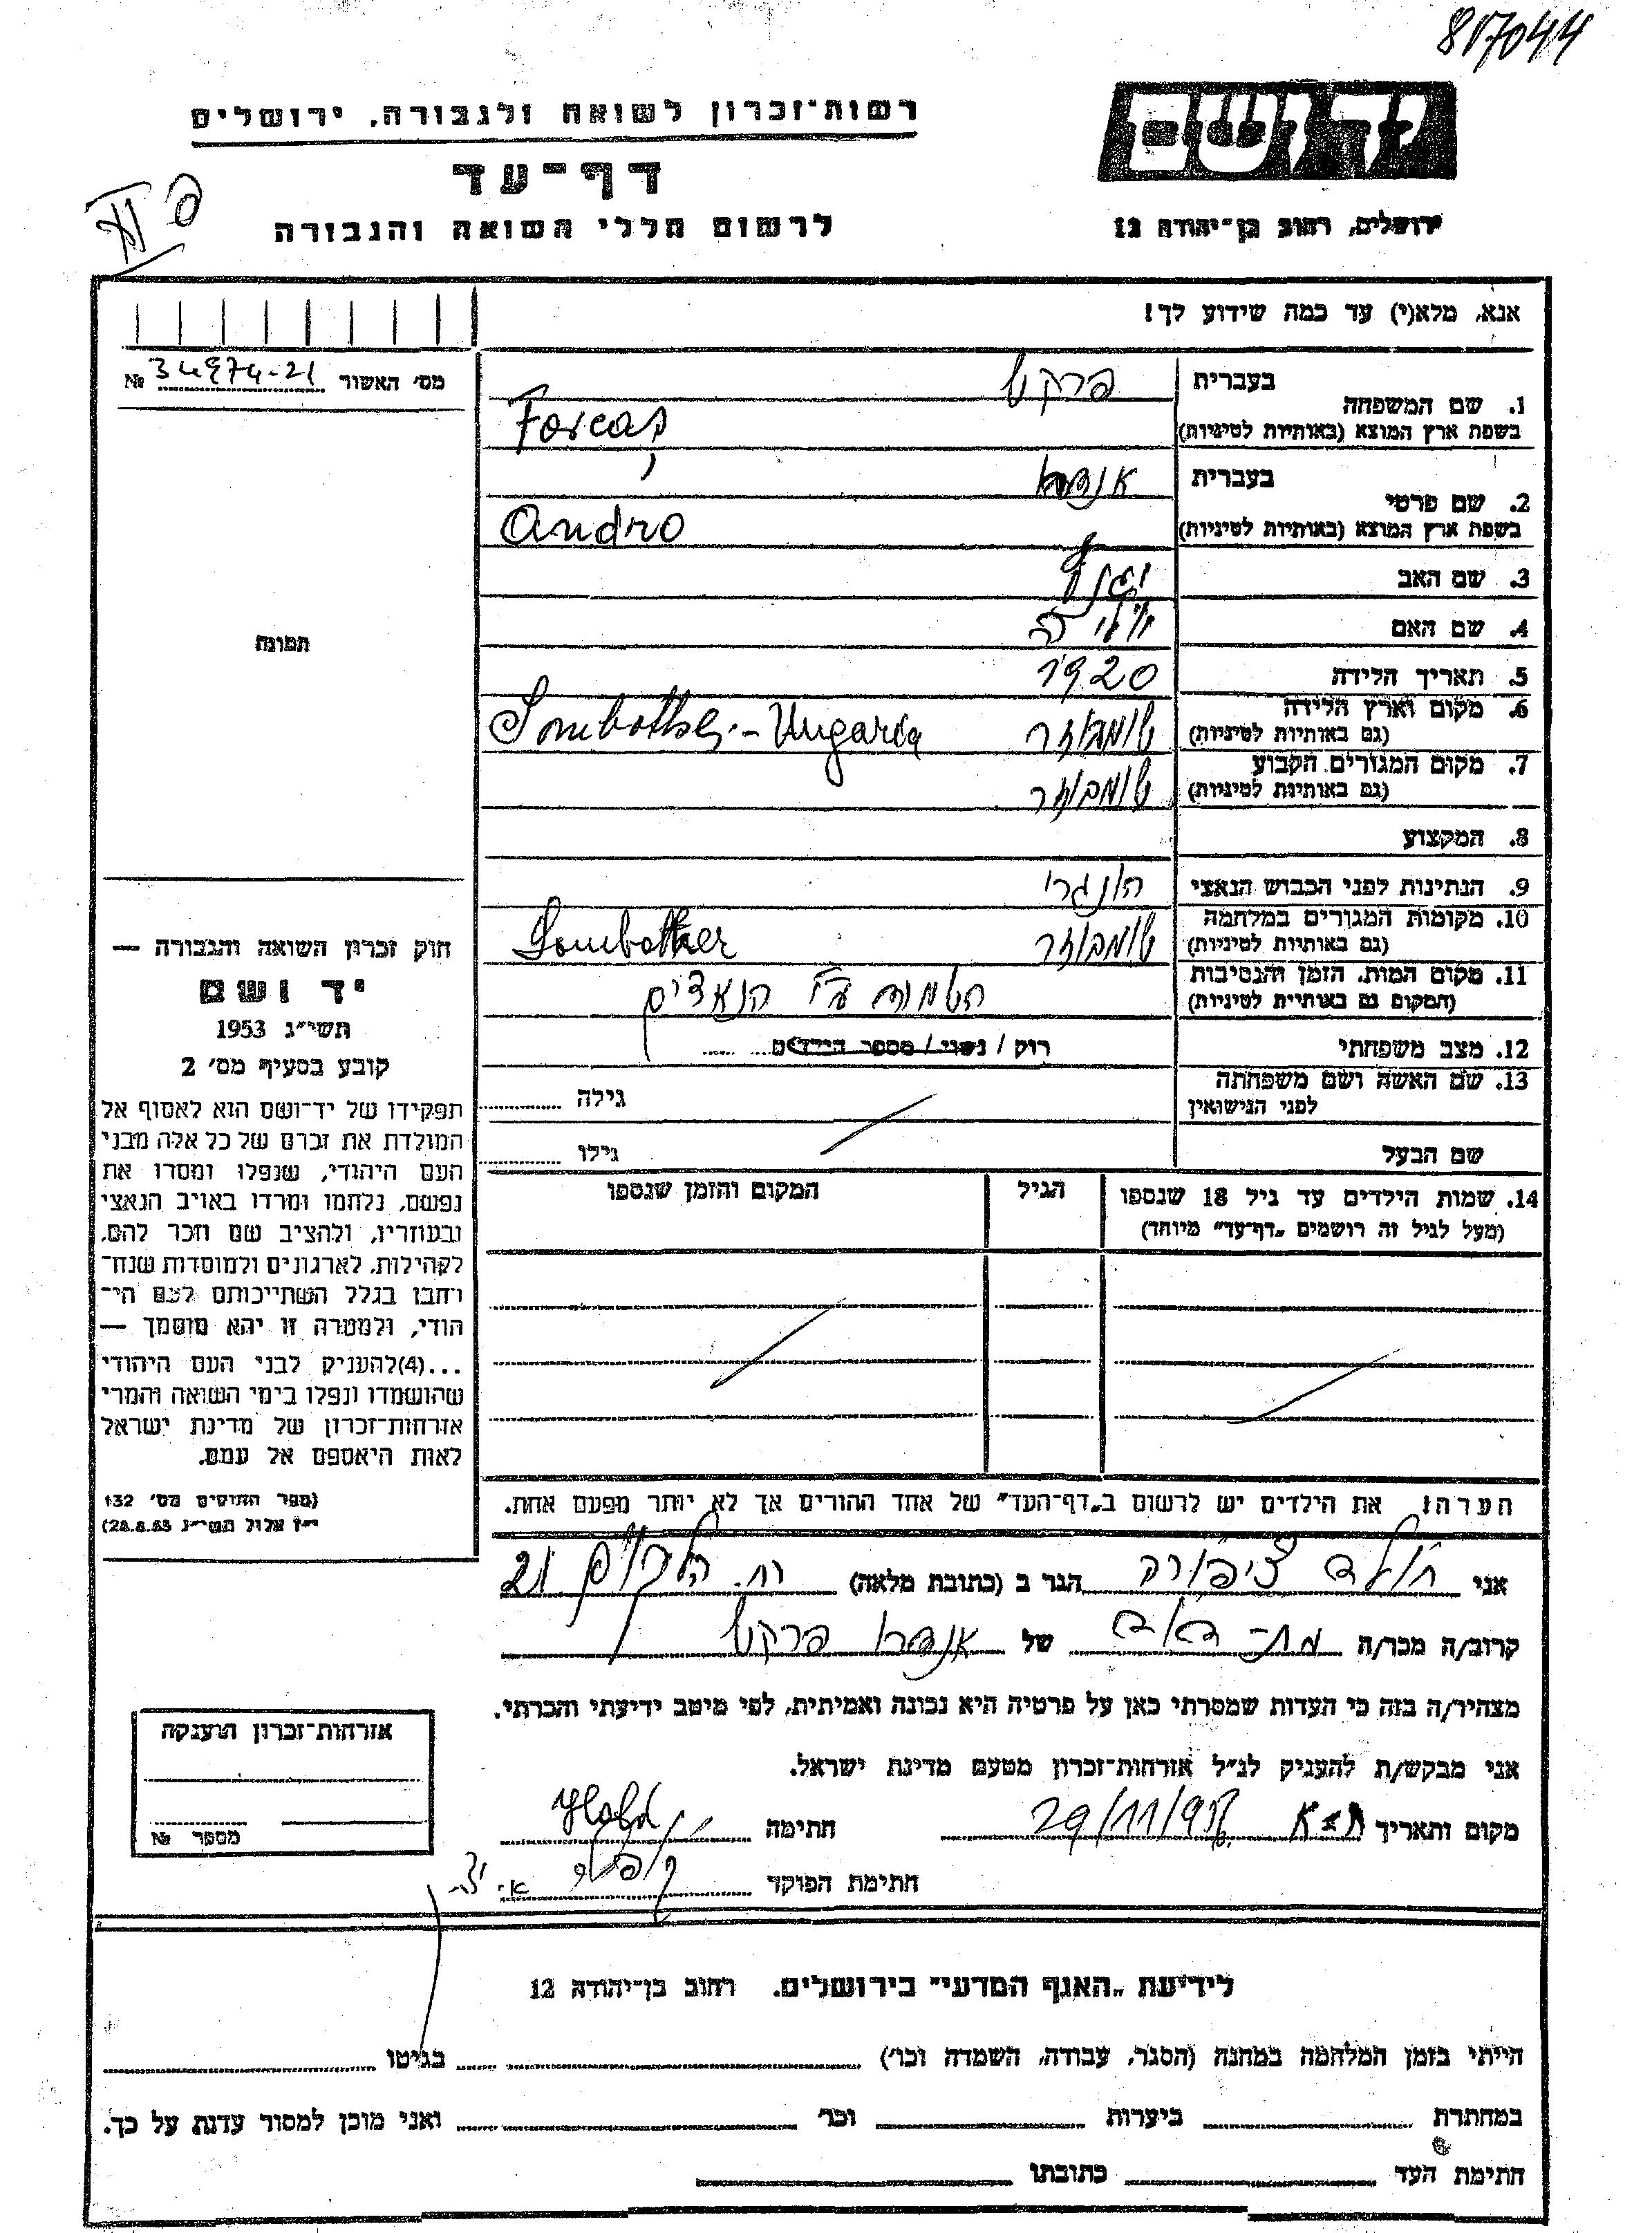 817044
יד ושם
רשות־זכרון לשואה ולגבורה, ירושלים
דף־עד
לרשום חללי השואה והגבורה
ירושלים, רחוב בן־יהודה 12
אנא, מלא(י) עד כמה שידוע לך!
מס׳ האשור № 34974-21
בעברית
1. שם המשפחה
בשפת ארץ המוצא (באותיות לטיניות)
פרקש
Forcaş
בעברית
2. שם פרטי
בשפת ארץ המוצא (באותיות לטיניות)
Andro
3. שם האב
4. שם האם
5. תאריך הלידה 1920
6. מקום וארץ הלידה
(גם באותיות לטיניות)
שומבוטר Ungaria
7. מקום המגורים הקבוע
(גם באותיות לטיניות)
שומבוטר
8. המקצוע
9. הנתינות לפני הכבוש הנאצי הונגרי
10. מקומות המגורים במלחמה
(גם באותיות לטיניות)
שומבוטר Sombother
11. מקום המות, הזמן והנסיבות
(המקום גם באותיות לטיניות)
הושמד ע״י הנאצים
12. מצב משפחתי רוק / נשוי / מספר הילדים
13. שם האשה ושם משפחתה
לפני הנישואין
גילה
שם הבעל גילו
14. שמות הילדים עד גיל 18 שנספו
(מעל לגיל זה רושמים „דף־עד״ מיוחד)
הגיל
המקום והזמן שנספו
תמונה
חוק זכרון השואה והגבורה —
יד ושם
תשי״ג 1953
קובע בסעיף מס׳ 2
תפקידו של יד־ושם הוא לאסוף אל
המולדת את זכרם של כל אלה מבני
העם היהודי, שנפלו ומסרו את
נפשם, נלחמו ומרדו באויב הנאצי
ובעוזריו, ולהציב שם וזכר להם,
לקהילות, לארגונים ולמוסדות שנח־
רבו בגלל השתייכותם לעם הי־
הודי, ולמטרה זו יהא מוסמך —
...(4)להעניק לבני העם היהודי
שהושמדו ונפלו בימי השואה והמרי
אזרחות־זכרון של מדינת ישראל
לאות היאספם אל עמם.
(ספר החוקים מס׳ 132
י״ז אלול תשי״ג 28.8.53)
הערה: את הילדים יש לרשום ב„דף־העד״ של אחד ההורים אך לא יותר מפעם אחת.
אני הולד ציפורה הגר ב (כתובת מלאה) רח. 21
קרוב/ה מכר/ה בת־דוד של אנדרו פרקש
מצהיר/ה בזה כי העדות שמסרתי כאן על פרטיה היא נכונה ואמיתית, לפי מיטב ידיעתי והכרתי.
אני מבקש/ת להעניק לנ״ל אזרחות־זכרון מטעם מדינת ישראל.
מקום ותאריך ת״א חתימה Hold
חתימת הפוקד
אזרחות־זכרון הוענקה
מספר №
לידיעת „האגף המדעי״ בירושלים, רחוב בן־יהודה 12
הייתי בזמן המלחמה במחנה (הסגר, עבודה, השמדה וכו׳) בגיטו
במחתרת ביערות וכו׳ ואני מוכן למסור עדות על כך.
חתימת העד כתובתו